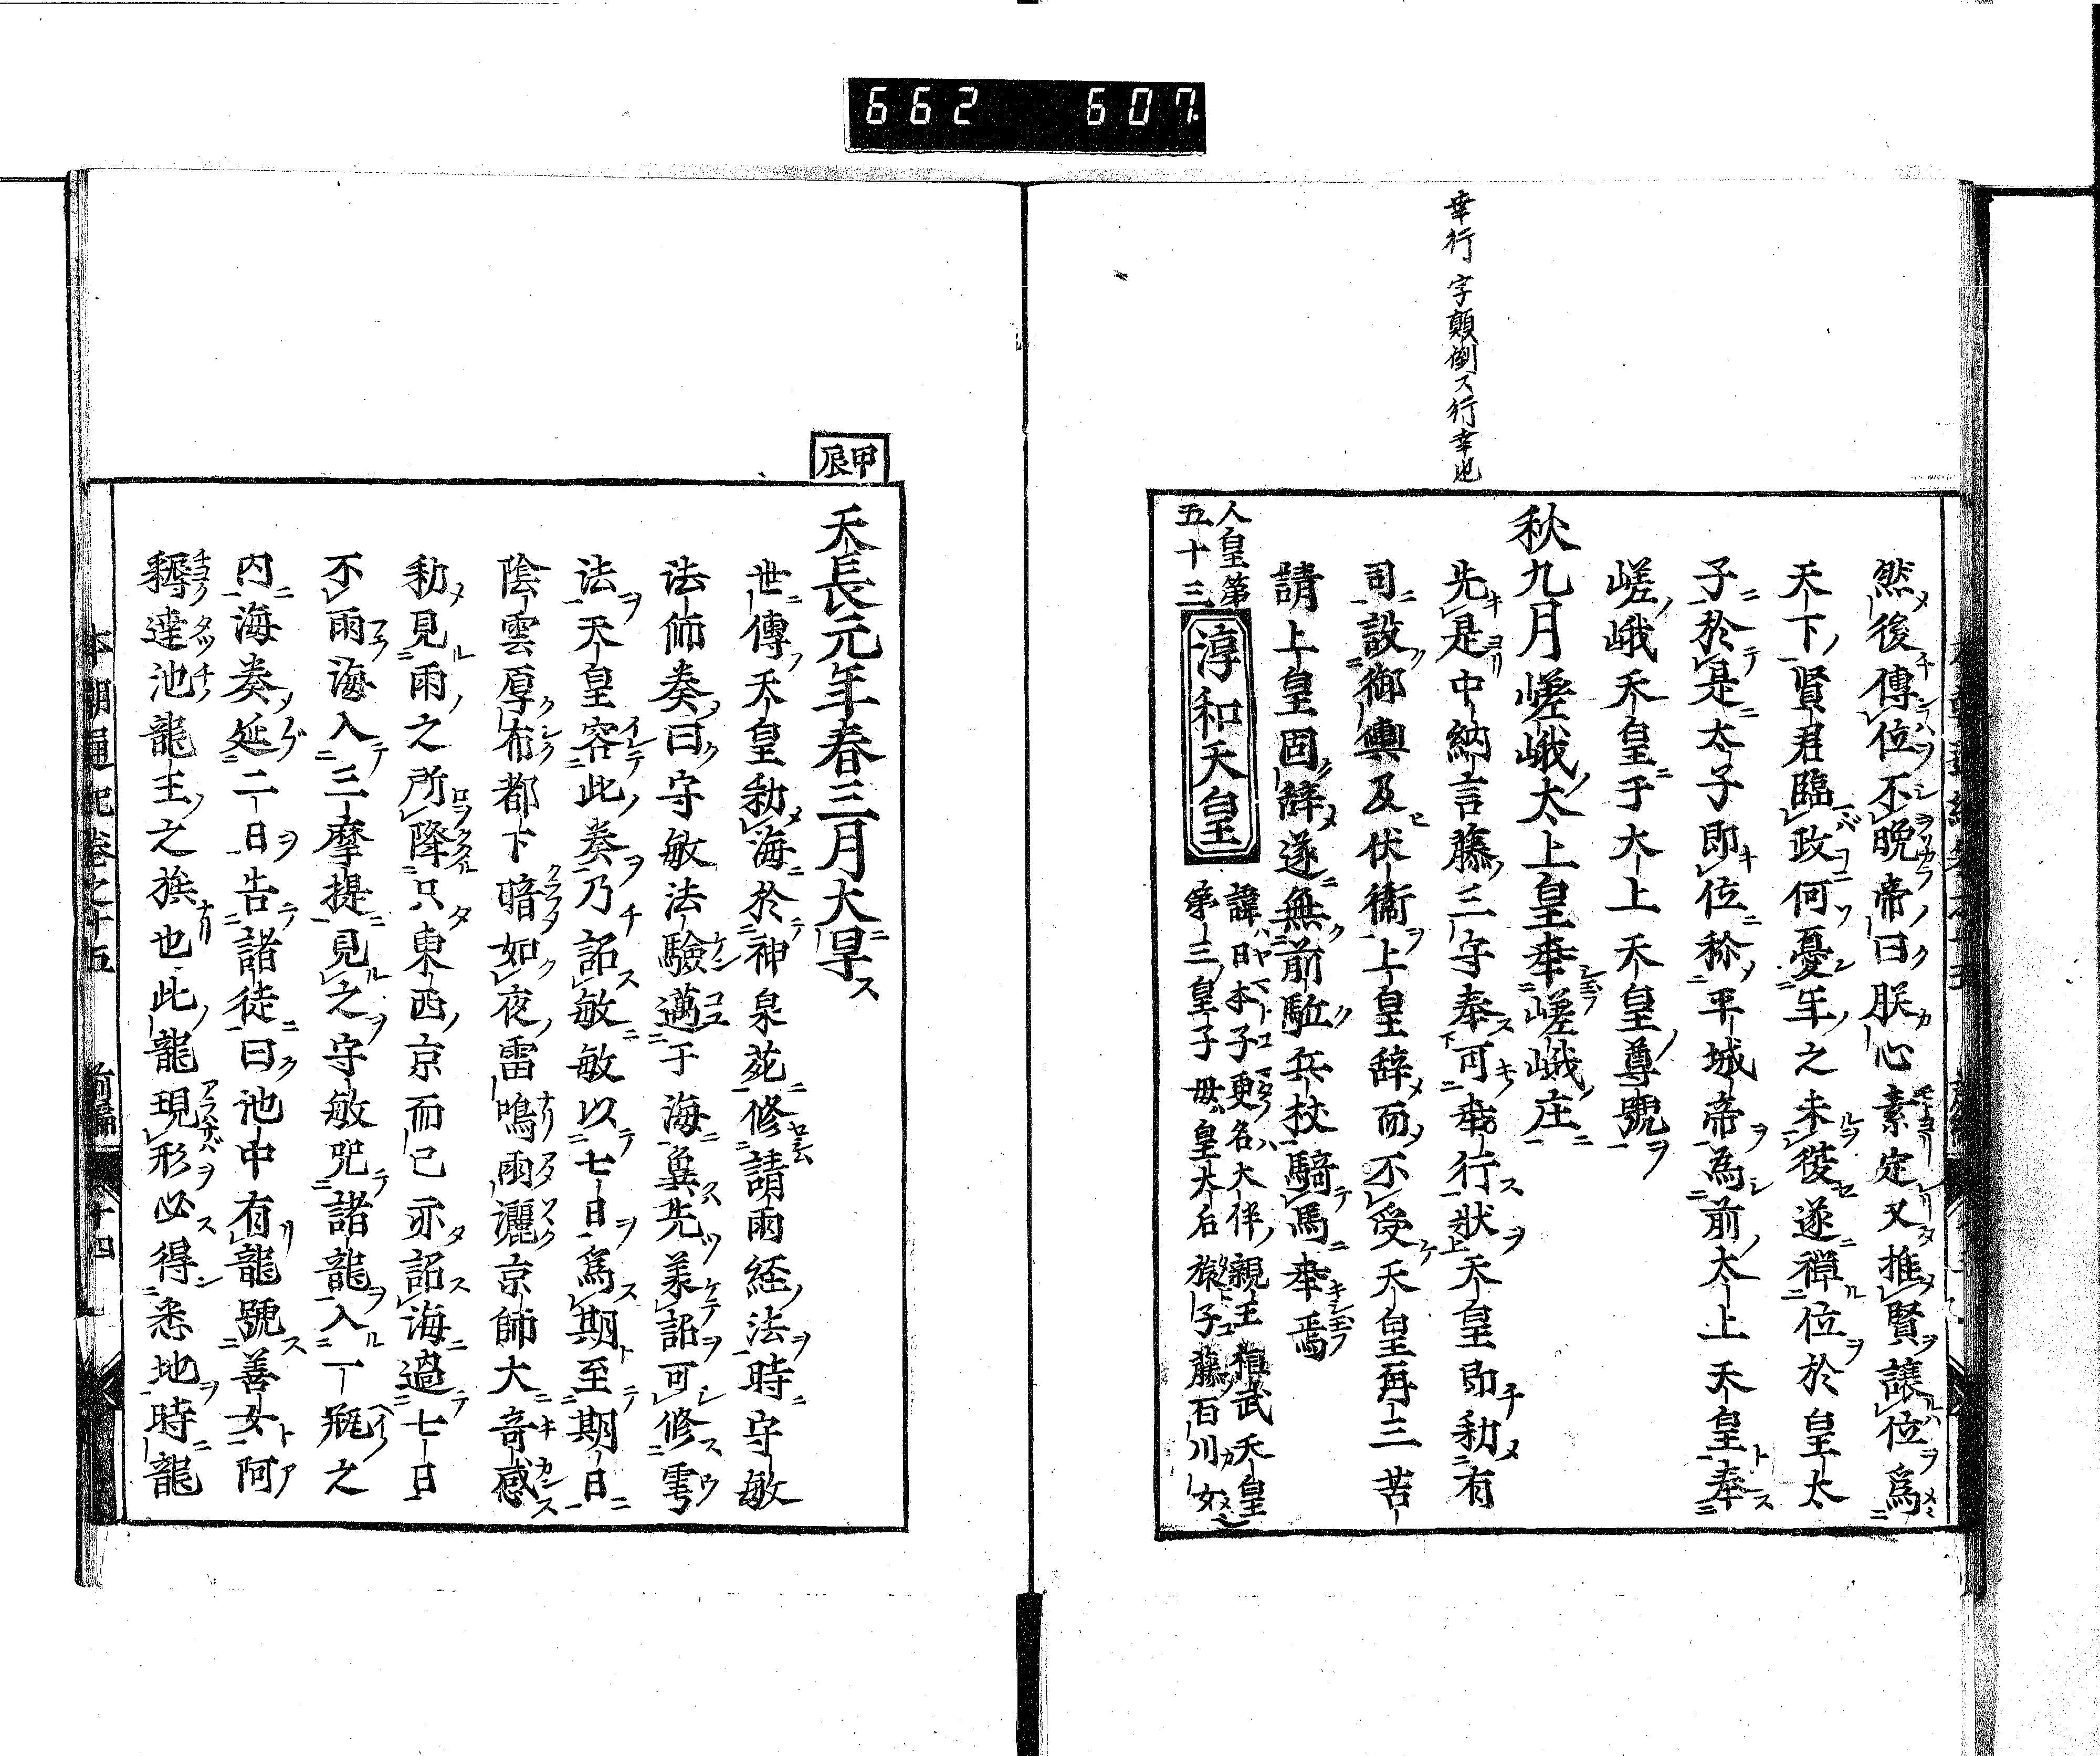 662 607
幸行 字顛倒ス行幸也
然後傳位不晩帝曰朕心素定又推賢讓位爲
天下賢君臨政何憂年之未後遂禪位於皇太
子於是太子即位称平城帝為前太上天皇奉
嵯峨天皇于大上天皇尊號
秋九月嵯峨太上皇幸嵯峨庄
先是中納言藤三守奉可幸行狀天皇即勅有
司設御輿及伏衞上皇辞而不受天皇再三苦
請上皇固辞遂無前駈兵杖騎馬幸焉
人皇第
五十三
淳和天皇
諱日本子更名大伴親王桓武天皇
第三皇子母皇大后旅子藤百川女
甲辰
天長元年春三月大旱ス
世傳天皇勅海於神泉苑修請雨経法時守敏
法師奏曰守敏法驗邁于海冀先義詔可修雩
法天皇容此奏乃詔敏敏以七日爲期至期日
陰雲厚布都下暗如夜雷鳴雨灑京師大竒感
勅見雨之所降只東西京而已亦詔海過七日
不雨海入三摩提見之守敏咒諸龍入一瓶之
内海奏延二日告諸徒曰池中有龍號善女阿
耨達池龍王之族也此龍現形必得悉地時龍
本朝通紀卷之十五 前編 十四